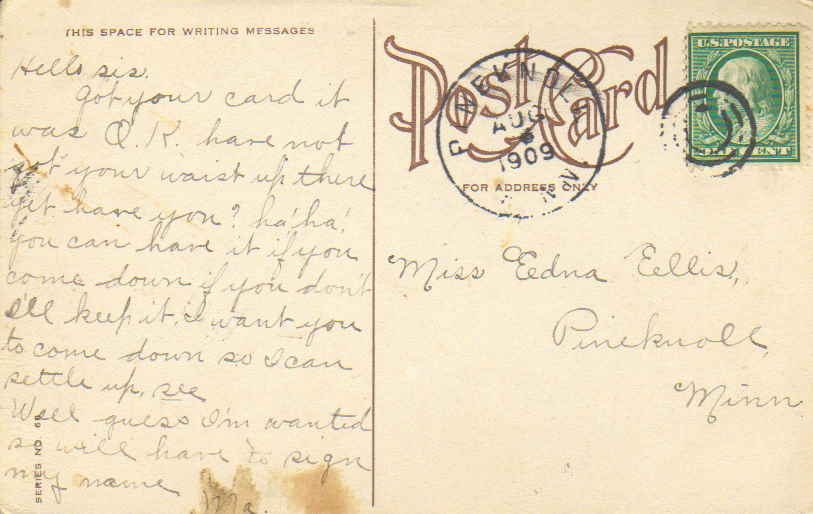 THIS SPACE FOR WRITING MESSAGES
Hello sis.
Got your card it
was O.K. have not
got your waist up there
yet have you? ha! ha!
you can have it if you
come down if you don't
I'll keep it. I want you
to come down so I can
settle up, see
Well guess I'm wanted
so will have to sign
my name
Ma.
SERIES NO. 69
Post Card
FOR ADDRESS ONLY
PINEKNOLL
AUG
1909
MINN.
U.S. POSTAGE
ONE CENT
Miss Eedna Eellis,
Pineknoll,
Minn